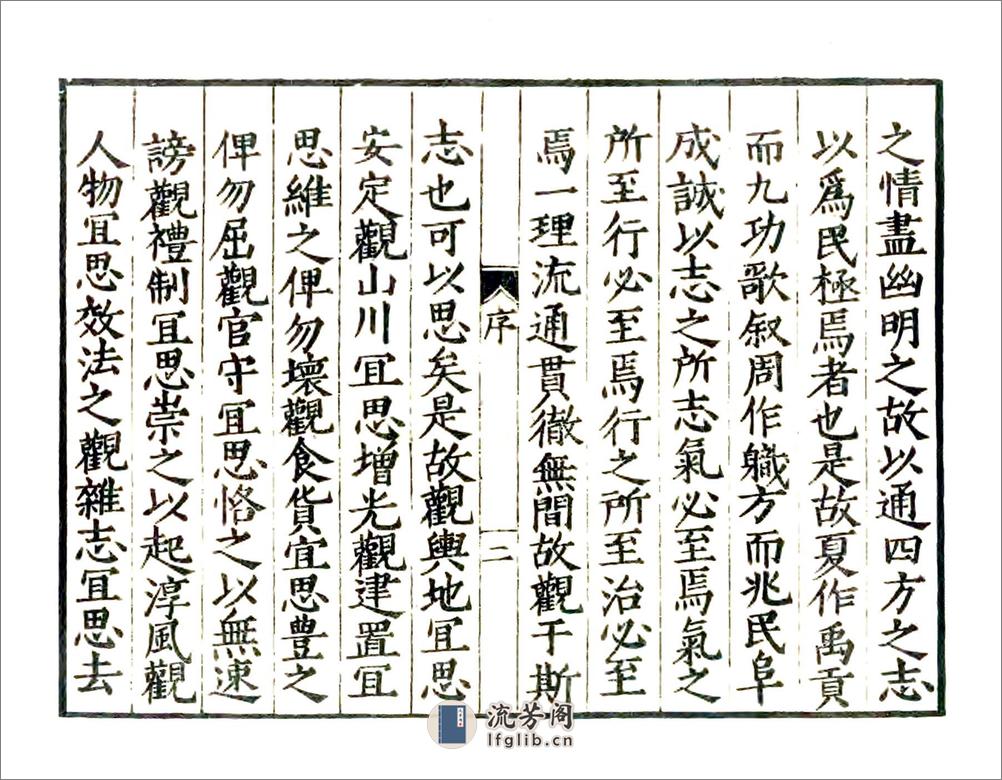 之情盡幽明之故以通四方之志
以爲民極焉者也是故夏作禹貢
而九功歌叙周作職方而兆民阜
成誠以志之所志氣必至焉氣之
所至行必至焉行之所至治必至
焉一理流通貫徹無間故觀于斯
序
二
志也可以思矣是故觀輿地冝思
安定觀山川冝思增光觀建置冝
思維之俾勿壞觀食貨宜思豊之
俾勿屈觀官守冝思恪之以無速
謗觀禮制冝思崇之以起淳風觀
人物冝思效法之觀雜志冝思去
流芳阁
lfglib.cn